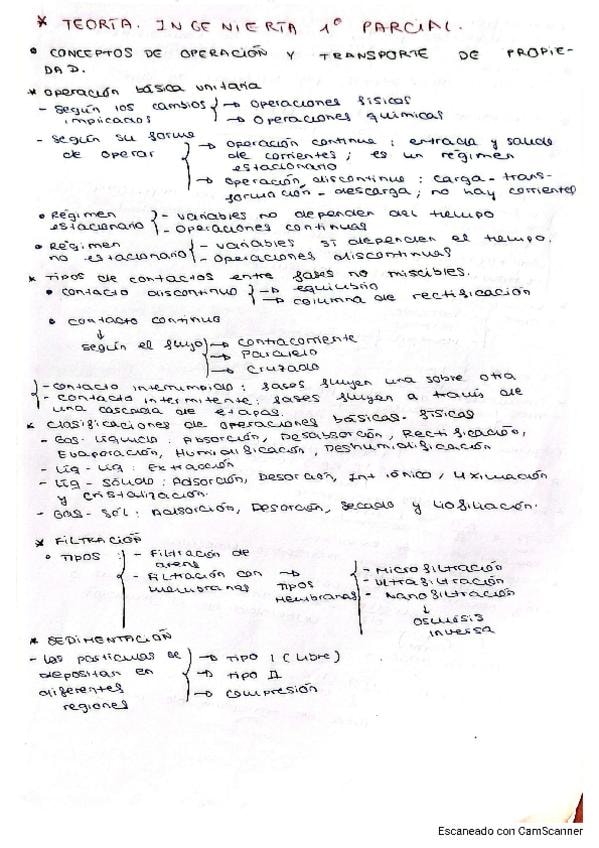 * TEORÍA. INGENIERÍA 1º PARCIAL.
• CONCEPTOS DE OPERACIÓN Y TRANSPORTE DE PROPIE-
DAD.
* operación básica unitaria
- Según los cambios → operaciones físicas
implicados → operaciones químicas
- Según su forma → operación continua : entrada y salida
de operar de corrientes ; es un régimen
estacionario
→ operación discontinua : carga - trans-
formación - descarga ; no hay corrientes
• Régimen - variables no dependen del tiempo
estacionario - operaciones continuas
• Régimen - variables sí dependen el tiempo.
no estacionario - operaciones discontinuas
* Tipos de contactos entre fases no miscibles.
• contacto discontinuo → equilibrio
→ columna de rectificación
• contacto continuo
↓
según el flujo → contracorriente
→ Paralelo
→ Cruzado
- contacto interrumpido : fases fluyen una sobre otra
- contacto intermitente : fases fluyen a través de
una cascada de etapas.
* Clasificaciones de operaciones básicas. físicas
- Gas - Líquido : Absorción, Desabsorción, Rectificación,
Evaporación, Humidificación, Deshumidificación
- Liq - Liq : Extracción
- Liq - Sólido : Adsorción, Desorción, Int iónico, Lixiviación
y Cristalización.
- Gas - Sol : Adsorción, Desorción, Secado y Liofiliación.
* FILTRACIÓN
• TIPOS : - Filtración de - Microfiltración
arena - Ultrafiltración
- Filtración con → TIPOS - Nanofiltración
membranas Membranas ↓
osmosis
inversa
* SEDIMENTACIÓN
- Las partículas se → TIPO I (Libre)
depositan en → TIPO II
diferentes → compresión
regiones
Escaneado con CamScanner